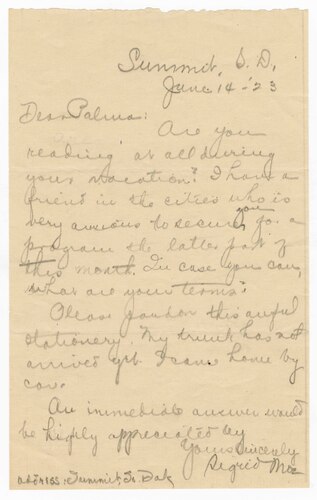 Summit, S. D.
June 14 - '23
Dear Palma:
Are you
reading at all during
your vacation? I have a
friend in the cities who is
very anxious to secure you for a
program the latter part of
this month. In case you can,
what are your terms?
Please pardon this awful
stationery. My trunk has not
arrived yet. I came home by
car.
An immediate answer would
be highly appreciated by
Yours sincerely
Sigrid Moe
address: Summit, So. Dak